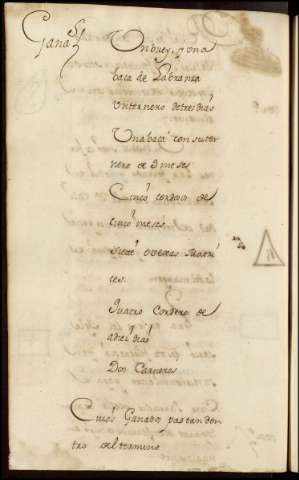 Ganads Un buey, y una
baca de Labranza
Un ternero de tres dias
Una baca con su ter
nero de 3 meses
Cinco corderos de
cinco meses
siete overas
Quatro Cordero de
a diez dias
Dos Carneros
Cuios Ganados pastan den
tro del termino